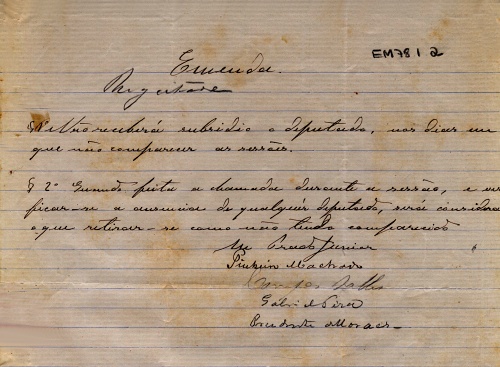 EM78 | 2
Emenda.
Rejeitada
§ 1º Não receberá subsidio o deputado, nos dias em
que não comparecer as sessões.
§ 2º Quando feita a chamada durante a sessão, e veri
ficar-se a ausencia de qualquer deputado, será considera
o que retirar-se como não tendo comparecido
M Prado Junior
Pinheiro Machado
Salles
Gabriel Piza
Prudente Moraes